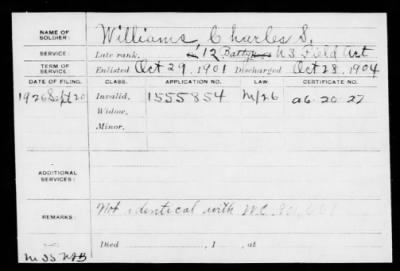 NAME OF SOLDIER: Williams Charles S.
SERVICE: Late rank, 12 Batty U.S. Field Art
TERM OF SERVICE: Enlisted Oct 29, 1901 Discharged Oct 28, 1904
DATE OF FILING. CLASS. APPLICATION NO. LAW. CERTIFICATE NO.
1926 Sept 20 Invalid, 1555854 M/26 a6-20-27
Widow,
Minor,
ADDITIONAL SERVICES:
REMARKS: Not identical with W.C.
Died , 1 , at